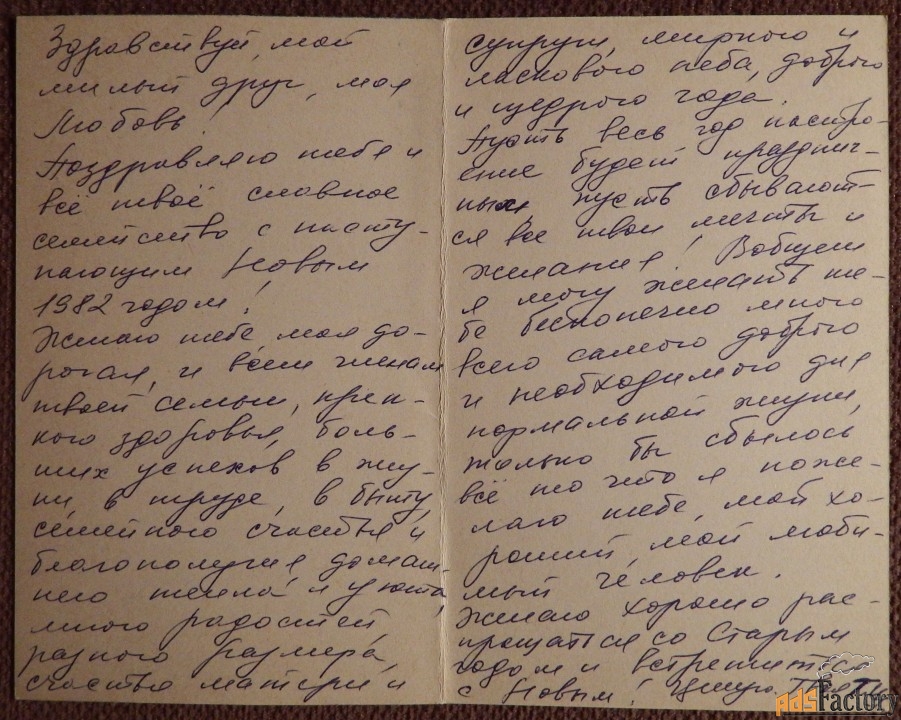 Здравствуй, мой
милый друг, моя
Любовь!
Поздравляю тебя и
всё твоё славное
семейство с насту-
пающим Новым
1982 годом!
Желаю тебе, моя до-
рогая, и всем членам
твоей семьи, креп-
кого здоровья, боль-
ших успехов в жиз-
ни, в труде, в быту,
семейного счастья и
благополучия, домаш-
него тепла и уюта,
много радостей
разного размера,
счастья матери и
супруги, мирного и
ласкового неба, доброго
и щедрого года.
Пусть весь год настро-
ение будет празднич-
ным, пусть сбывают-
ся все твои мечты и
желания! Вобщем
я могу желать те-
бе бесконечно много
всего самого доброго
и необходимого для
нормальной жизни,
только бы сбылось
всё то что я поже-
лаю тебе, мой хо-
роший, мой люби-
мый человек.
Желаю хорошо рас-
прощаться со Старым
годом и встретиться
с Новым! Целую.
AdsFactory